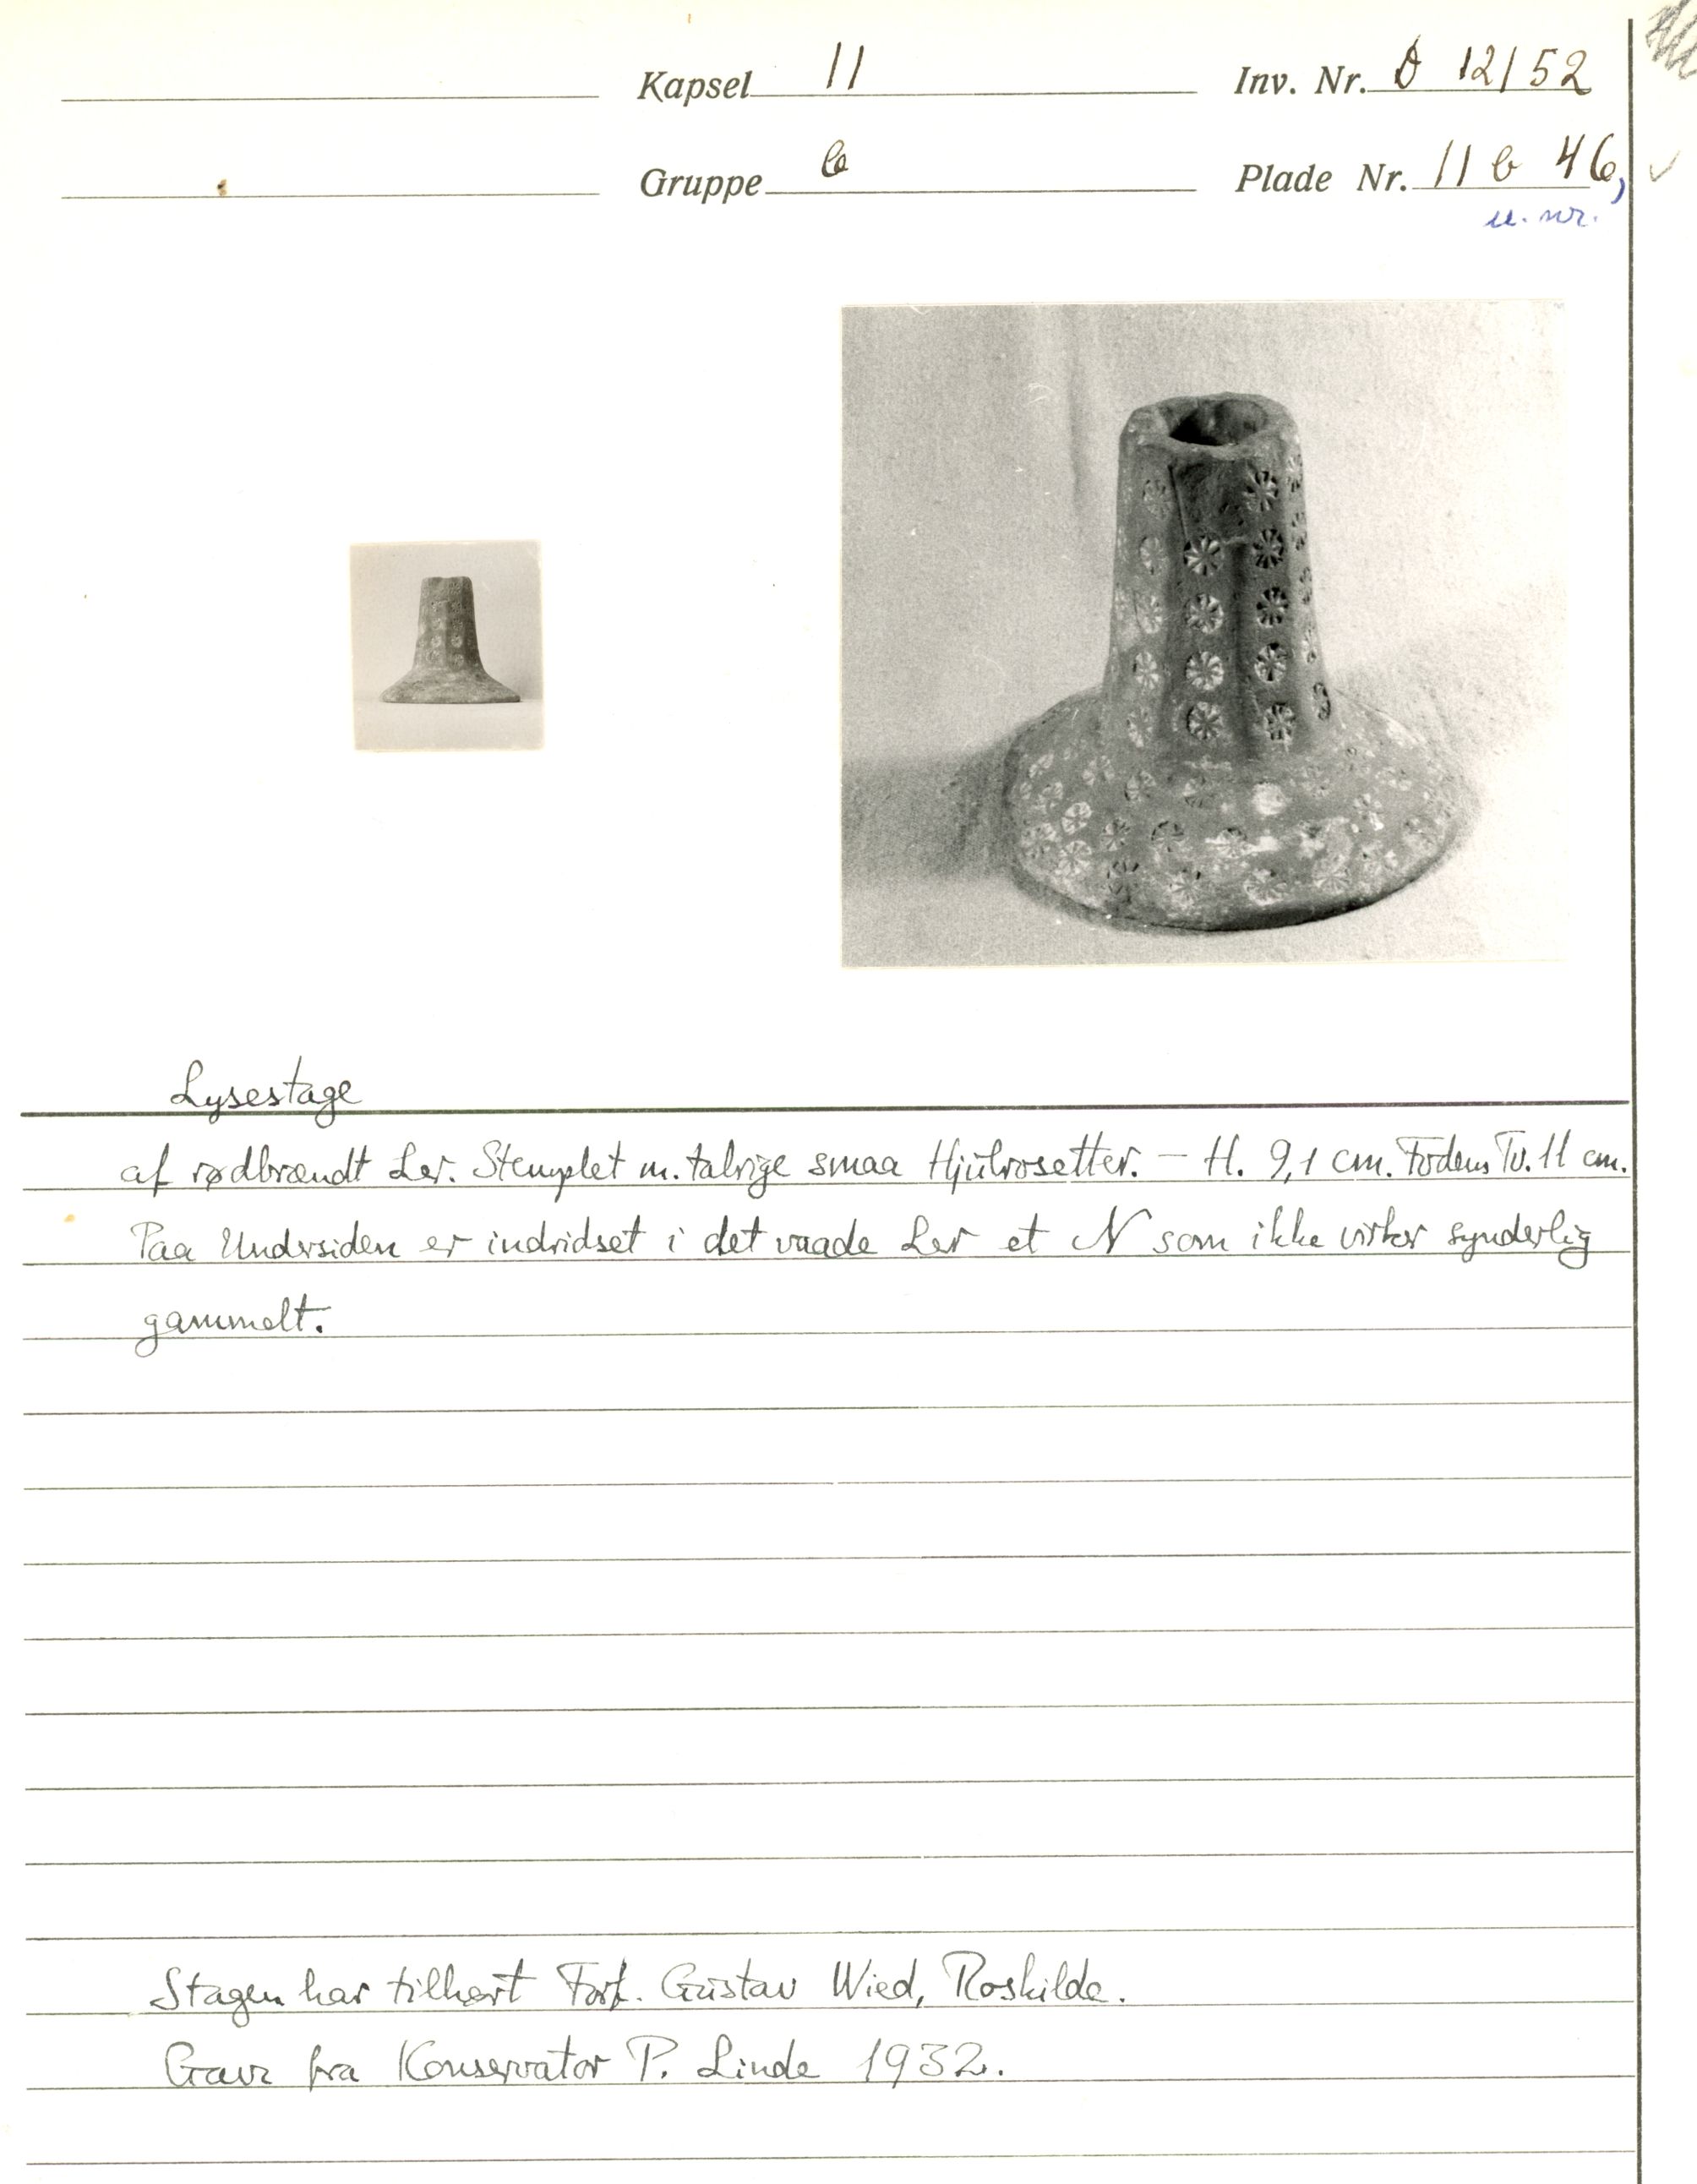 Kapsel 11 Inv. Nr. D 12/52
Gruppe b Plade Nr. 11 b 46,
u. nr.
Lysestage
af rødbrændt Ler. Stemplet m. talrige smaa Hjulrosetter. – H. 9,1 cm. Fodens Tv. 11 cm.
Paa Undersiden er indridset i det vaade Ler et N som ikke virker synderlig
gammelt.
Stagen har tilhørt Forf. Gustav Wied, Roskilde.
Gave fra Konservator P. Linde 1932.